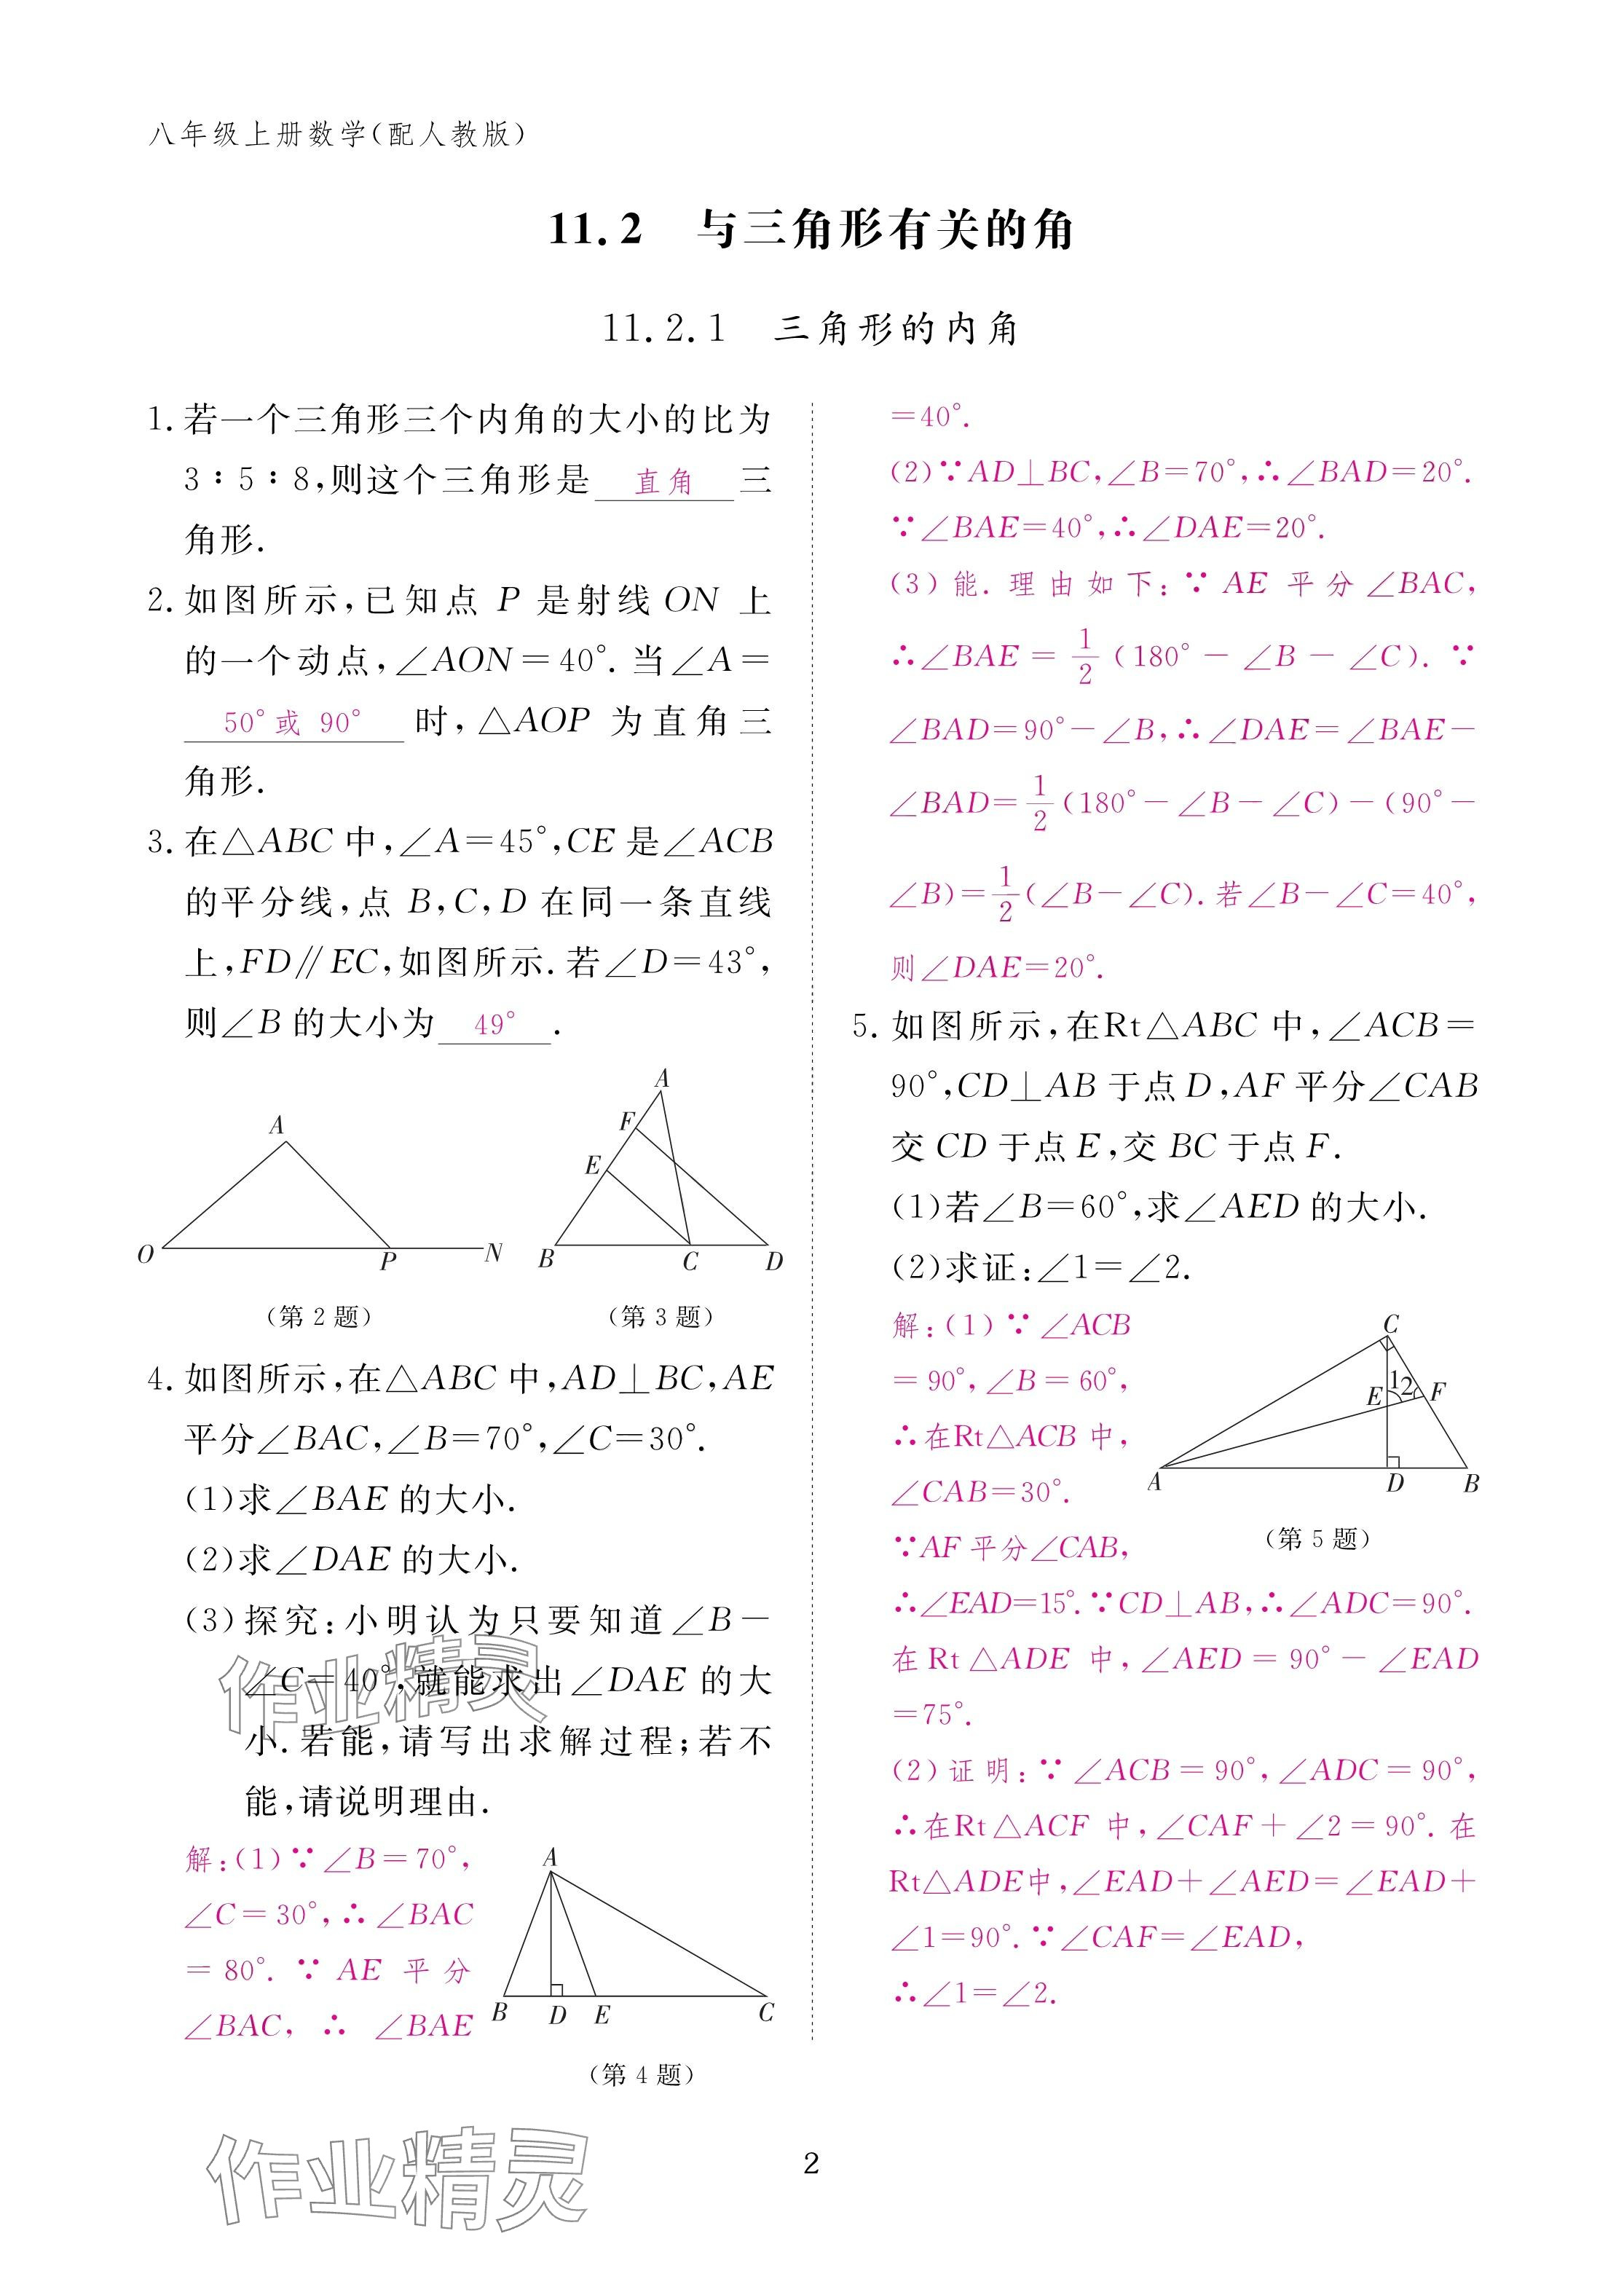 八年级上册数学(配人教版)
11.2 与三角形有关的角
11.2.1 三角形的内角
1. 若一个三角形三个内角的大小的比为
3∶5∶8,则这个三角形是 直角 三
角形.
2. 如图所示,已知点 P 是射线 ON 上
的一个动点,∠AON=40°. 当∠A=
50°或 90° 时,△AOP 为直角三
角形.
3. 在△ABC 中,∠A=45°,CE 是∠ACB
的平分线,点 B,C,D 在同一条直线
上,FD∥EC,如图所示. 若∠D=43°,
则∠B 的大小为 49° .
A
O
P
N
(第 2 题)
A
F
E
B
C
D
(第 3 题)
4. 如图所示,在△ABC 中,AD⊥BC,AE
平分∠BAC,∠B=70°,∠C=30°.
(1)求∠BAE 的大小.
(2)求∠DAE 的大小.
(3)探究:小明认为只要知道∠B-
∠C=40°,就能求出∠DAE 的大
小. 若能,请写出求解过程;若不
能,请说明理由.
解:(1)∵∠B=70°,
∠C=30°,∴∠BAC
=80°. ∵ AE 平分
∠BAC, ∴ ∠BAE
A
B
D
E
C
(第 4 题)
=40°.
(2)∵AD⊥BC,∠B=70°,∴∠BAD=20°.
∵∠BAE=40°,∴∠DAE=20°.
(3)能. 理由如下:∵ AE 平分∠BAC,
∴∠BAE=1/2(180°-∠B-∠C). ∵
∠BAD=90°-∠B,∴∠DAE=∠BAE-
∠BAD=1/2(180°-∠B-∠C)-(90°-
∠B)=1/2(∠B-∠C). 若∠B-∠C=40°,
则∠DAE=20°.
5. 如图所示,在Rt△ABC 中,∠ACB=
90°,CD⊥AB 于点 D,AF 平分∠CAB
交 CD 于点 E,交 BC 于点 F.
(1)若∠B=60°,求∠AED 的大小.
(2)求证:∠1=∠2.
解:(1)∵∠ACB
=90°,∠B=60°,
∴在Rt△ACB 中,
∠CAB=30°.
∵AF 平分∠CAB,
C
E
1
2
F
A
D
B
(第 5 题)
∴∠EAD=15°. ∵CD⊥AB,∴∠ADC=90°.
在 Rt△ADE 中,∠AED=90°-∠EAD
=75°.
(2)证明:∵∠ACB=90°,∠ADC=90°,
∴在Rt△ACF 中,∠CAF+∠2=90°. 在
Rt△ADE中,∠EAD+∠AED=∠EAD+
∠1=90°. ∵∠CAF=∠EAD,
∴∠1=∠2.
作业精灵
作业精灵
2